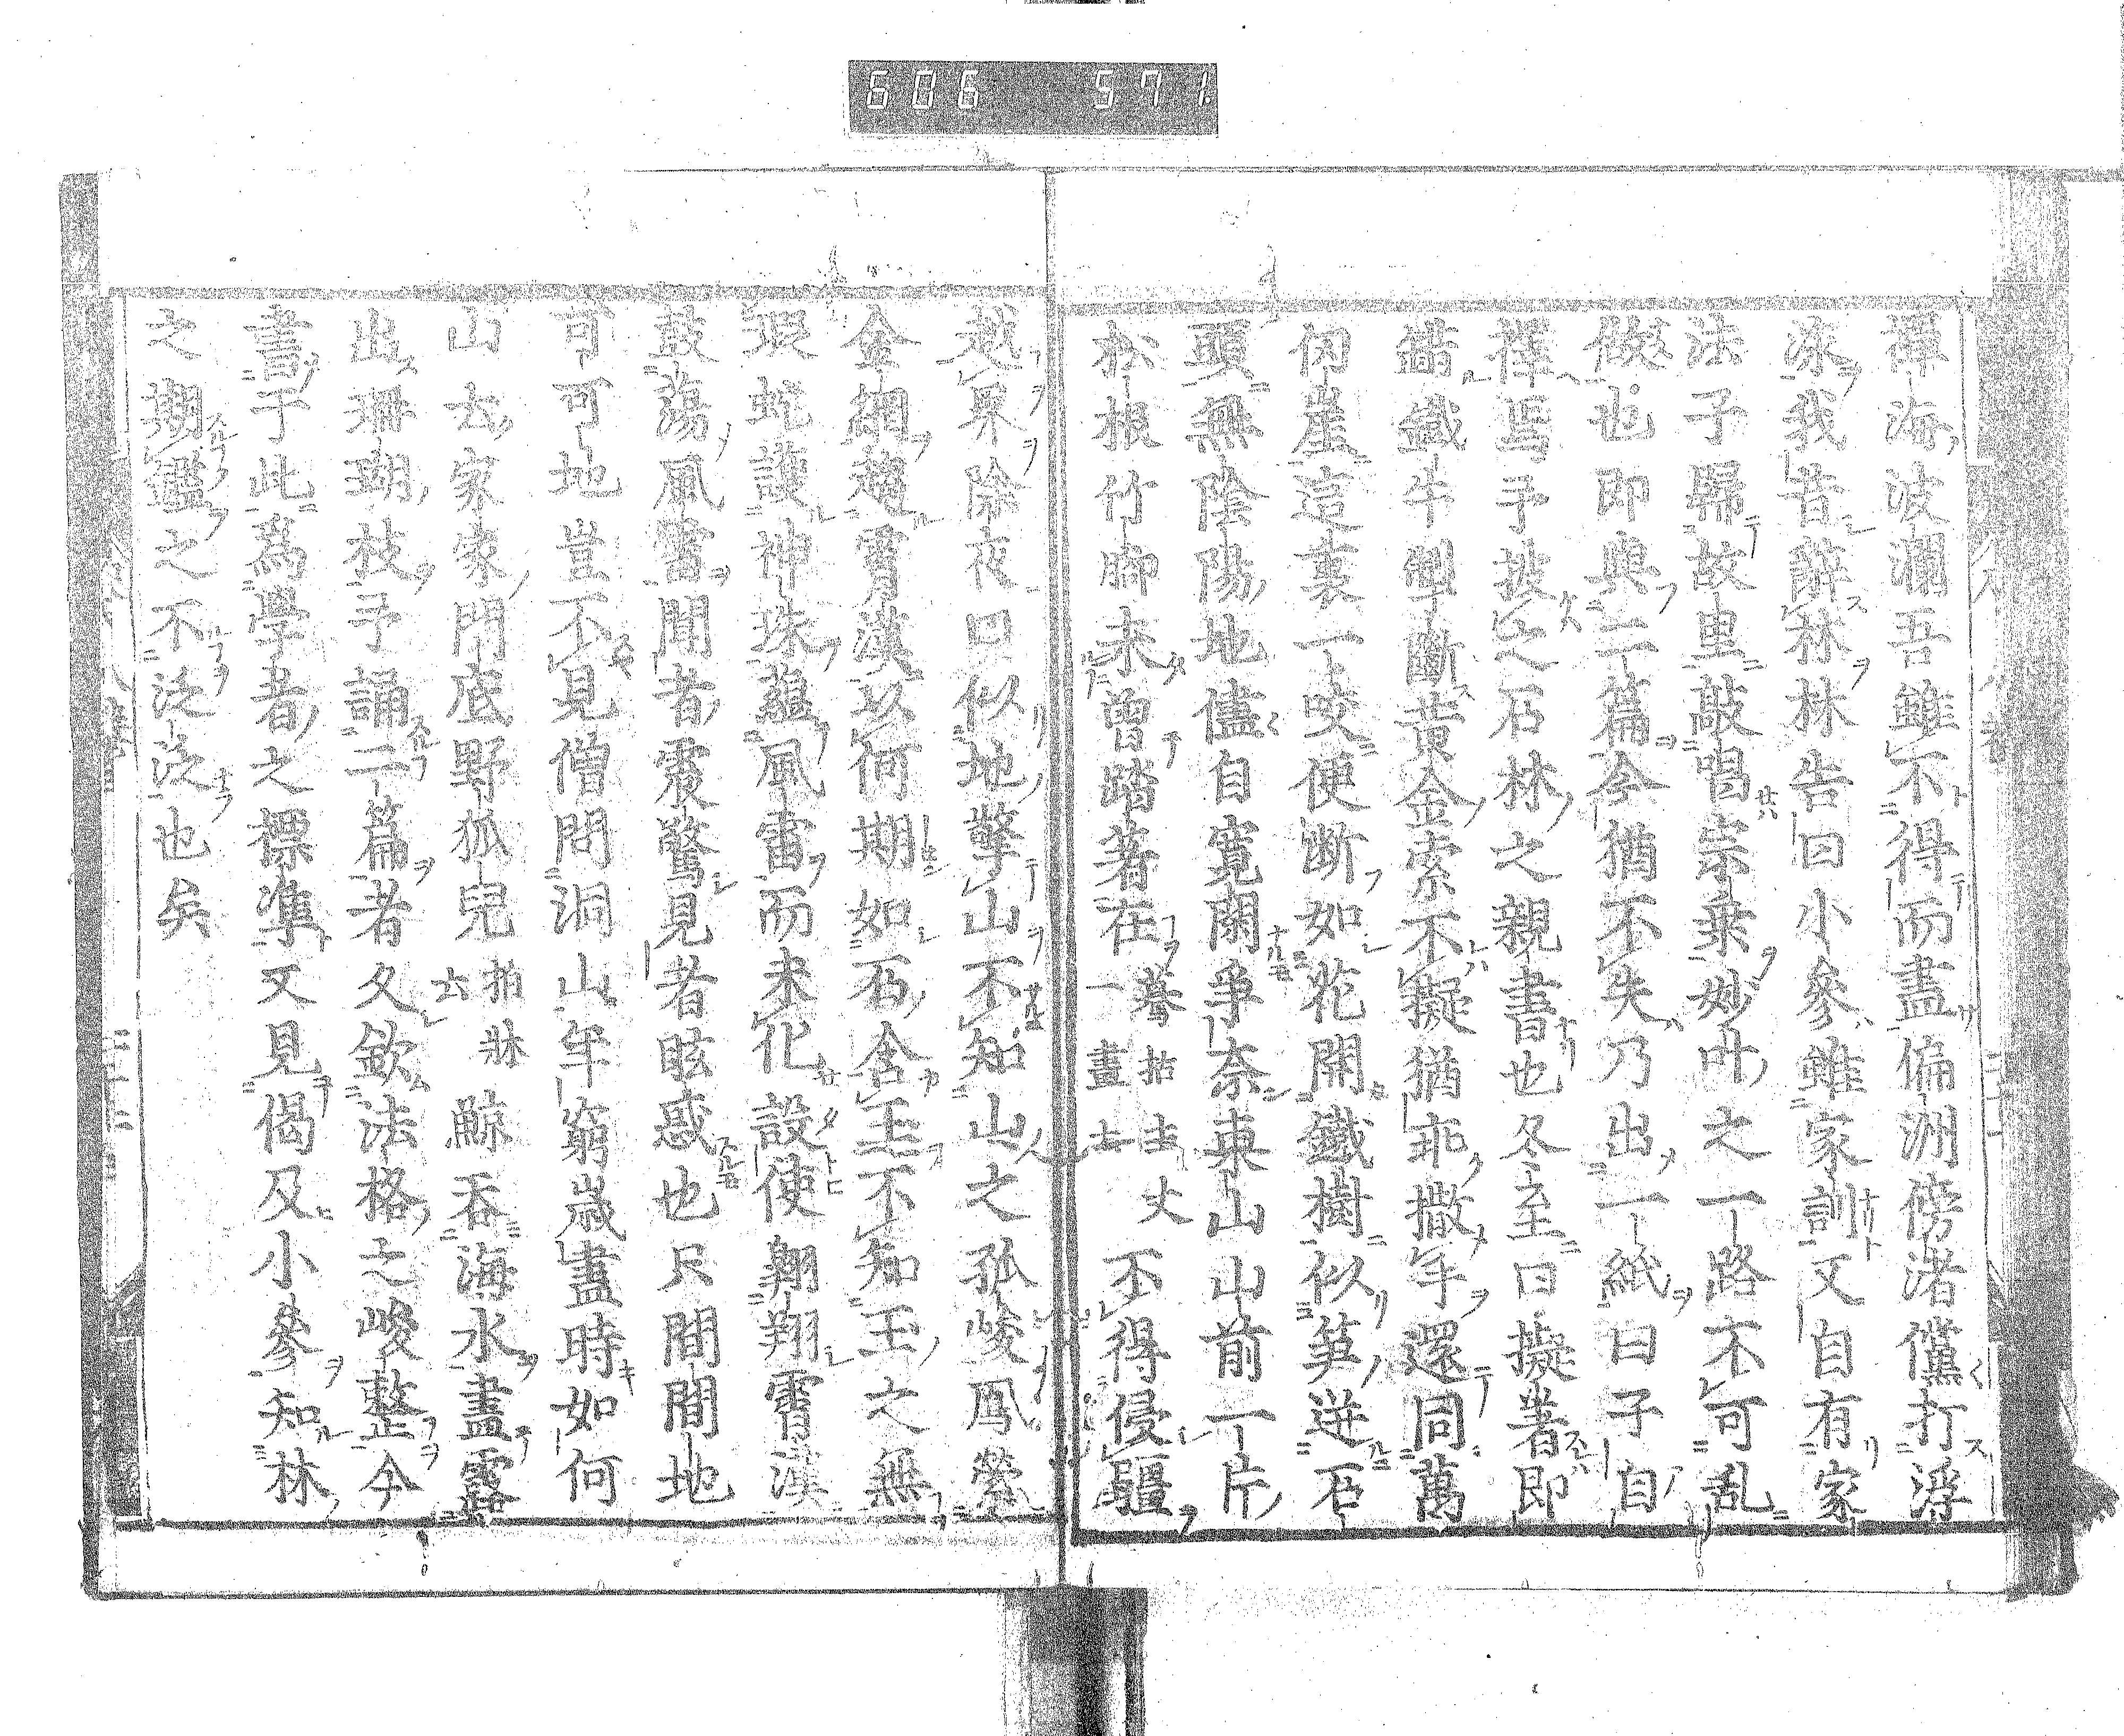 606 571
禪海波瀾吾雖不得而盡偏洲傍渚儻打滂
沫我昔辭林林告曰小參雖家訓又自有家
法子歸故里敲唱宗乗妙叶之一路不可乱
做也即與二篇今猶不失乃出一紙曰子自
擇焉予披之石林之親書也冬至曰擬著即
錯鐵牛掣斷黄金索不擬猶乖撒手還同萬
仞崖這裏一咬便断如花開鐵樹似笋迸石
頭無陰陽地儘自寛閑爭奈東山山前一片
松根竹脚未曽踏著在驀拈主丈一畫云不得侵疆
越界除夜曰似地擎山不知山之孤峻鳳縈
金網趨霄漢以何期如石含玉不知玉之無
瑕蛇護神珠蘊風雷而未化設使翺翔霄漢
鼓蕩風雷聞者震驚見者眩惑也只間間地
可可地豈不見僧問洞山年窮歳盡時如何
山云家家門底野狐兒拍牀云鯨吞海水盡露
出珊瑚枝予誦二篇者久欽法格之峻整今
書于此為學者之標準又見偈及小參知林
之期鑑之不泛泛也矣